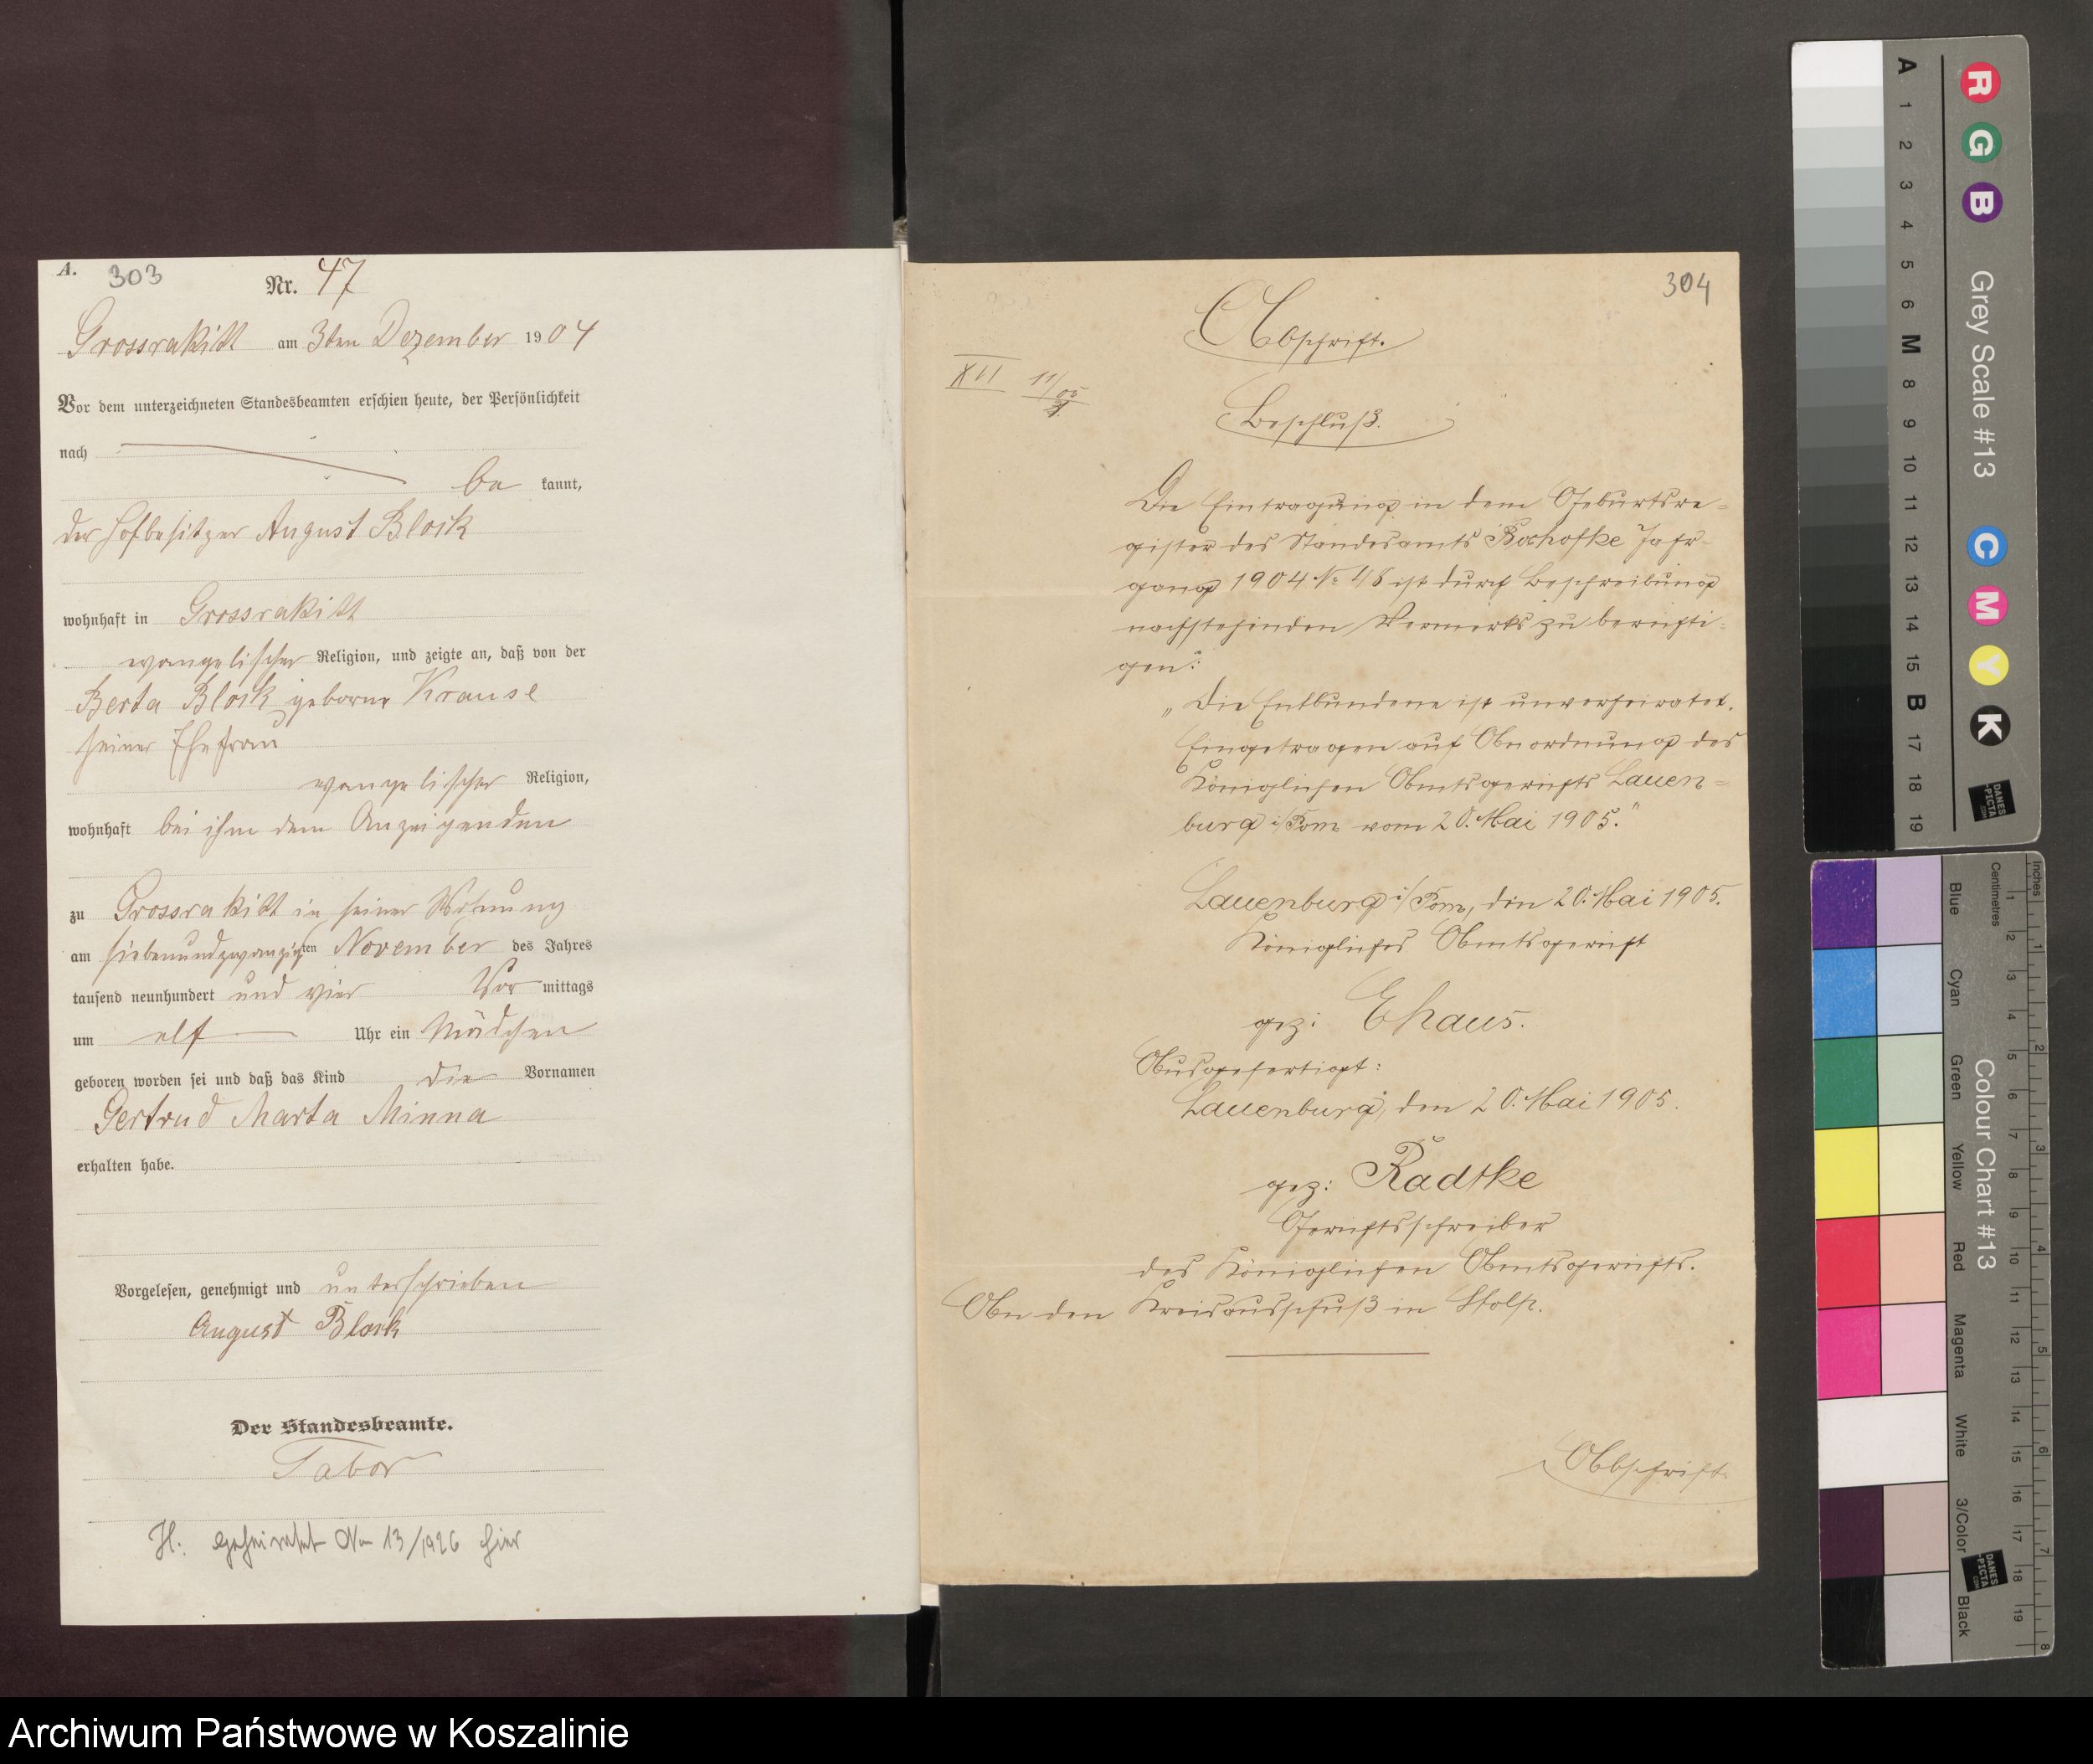 A.
303
Nr. 47
Grossrakitt am 3ten Dezember 1904
Vor dem unterzeichneten Standesbeamten erschien heute, der Persönlichkeit
nach
be kannt,
der Hofbesitzer August Block
wohnhaft in Grossrakitt
evangelischer Religion, und zeigte an, daß von der
Berta Block geborne Krause
seiner Ehefrau
evangelischer Religion,
wohnhaft bei ihm dem Anzeigenden
zu Grossrakitt in seiner Wohnung
am siebenundzwanzigten November des Jahres
tausend neunhundert und vier Vor mittags
um elf Uhr ein Mädchen
geboren worden sei und daß das Kind die Vornamen
Gertrud Marta Minna
erhalten habe.
Vorgelesen, genehmigt und unterschrieben
August Block
Der Standesbeamte.
Tabor
H. geheiratet No 13/1926 hier
304
Abschrift.
XVI 11/05
Beschluß.
Die Eintragung in dem Geburtsre-
gister des Standesamts Jahr-
gang 1904 № 48 ist durch Beschreibung
nachstehenden Vermerks zu berichti-
gen:
„Die Entbundene ist unverheiratet.
Eingetragen auf Anordnung des
Königlichen Amtsgerichts Lauen-
burg i/Pom vom 20. Mai 1905."
Lauenburg i/Pom, den 20. Mai 1905.
Königliches Amtsgericht
gez: Ehaus.
Ausgefertigt:
Lauenburg, den 20. Mai 1905.
gez: Radtke
Gerichtsschreiber
des Königlichen Amtsgerichts.
An den Kreisausschuß in Stolp.
Abschrift
A 1 2 3 4 5 6 M 8 9 10 11 12 13 14 15 B 17 18 19
R G B Grey Scale #13 C M Y K
DANES-PICTA.COM
Inches 1 2 3 4 5 6 7 8
Centimetres 1 2 3 4 5 6 7 8 9 10 11 12 13 14 15 16 17 18 19
Blue Cyan Green Yellow Red Magenta White 3/Color Black
Colour Chart #13
DANES-PICTA.COM
Archiwum Państwowe w Koszalinie